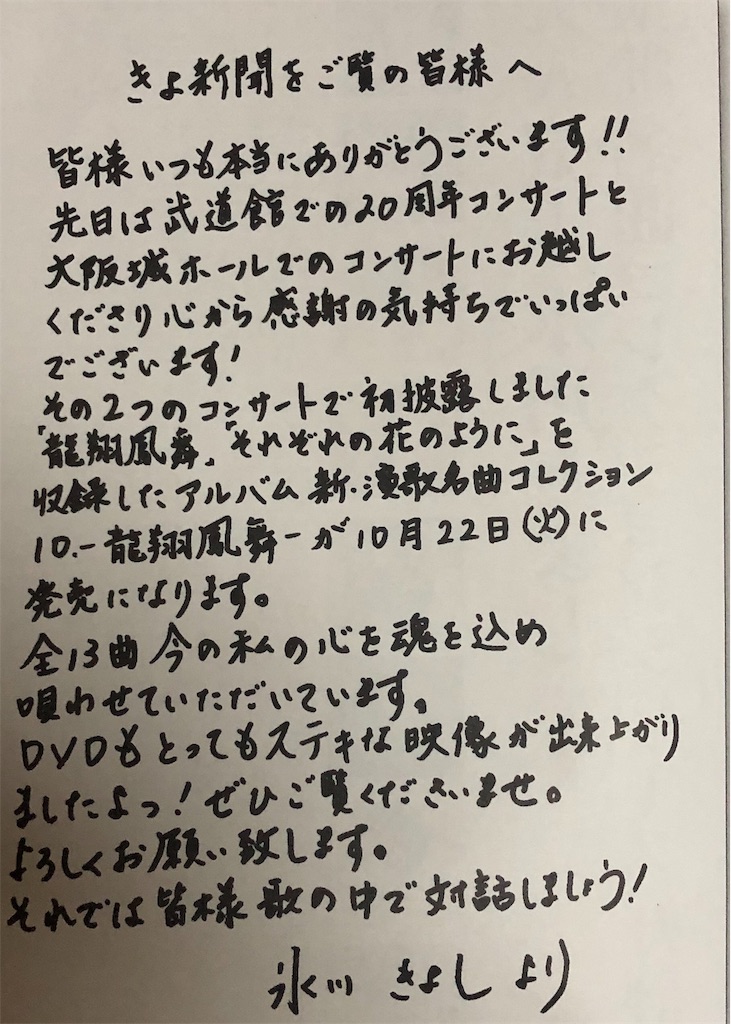 きよ新聞をご覧の皆様へ
皆様いつも本当にありがとうございます!!
先日は武道館での20周年コンサートと
大阪城ホールでのコンサートにお越し
くださり心から感謝の気持ちでいっぱい
でございます!
その2つのコンサートで初披露しました
「龍翔鳳舞」「それぞれの花のように」を
収録したアルバム新・演歌名曲コレクション
10.ー龍翔鳳舞ーが10月22日(火)に
発売になります。
全13曲今の私の心を魂を込め
唄わせていただいています。
DVDもとってもステキな映像が出来上がり
ましたよっ!ぜひご覧くださいませ。
よろしくお願い致します。
それでは皆様歌の中で対話しましょう!
氷川きよしより